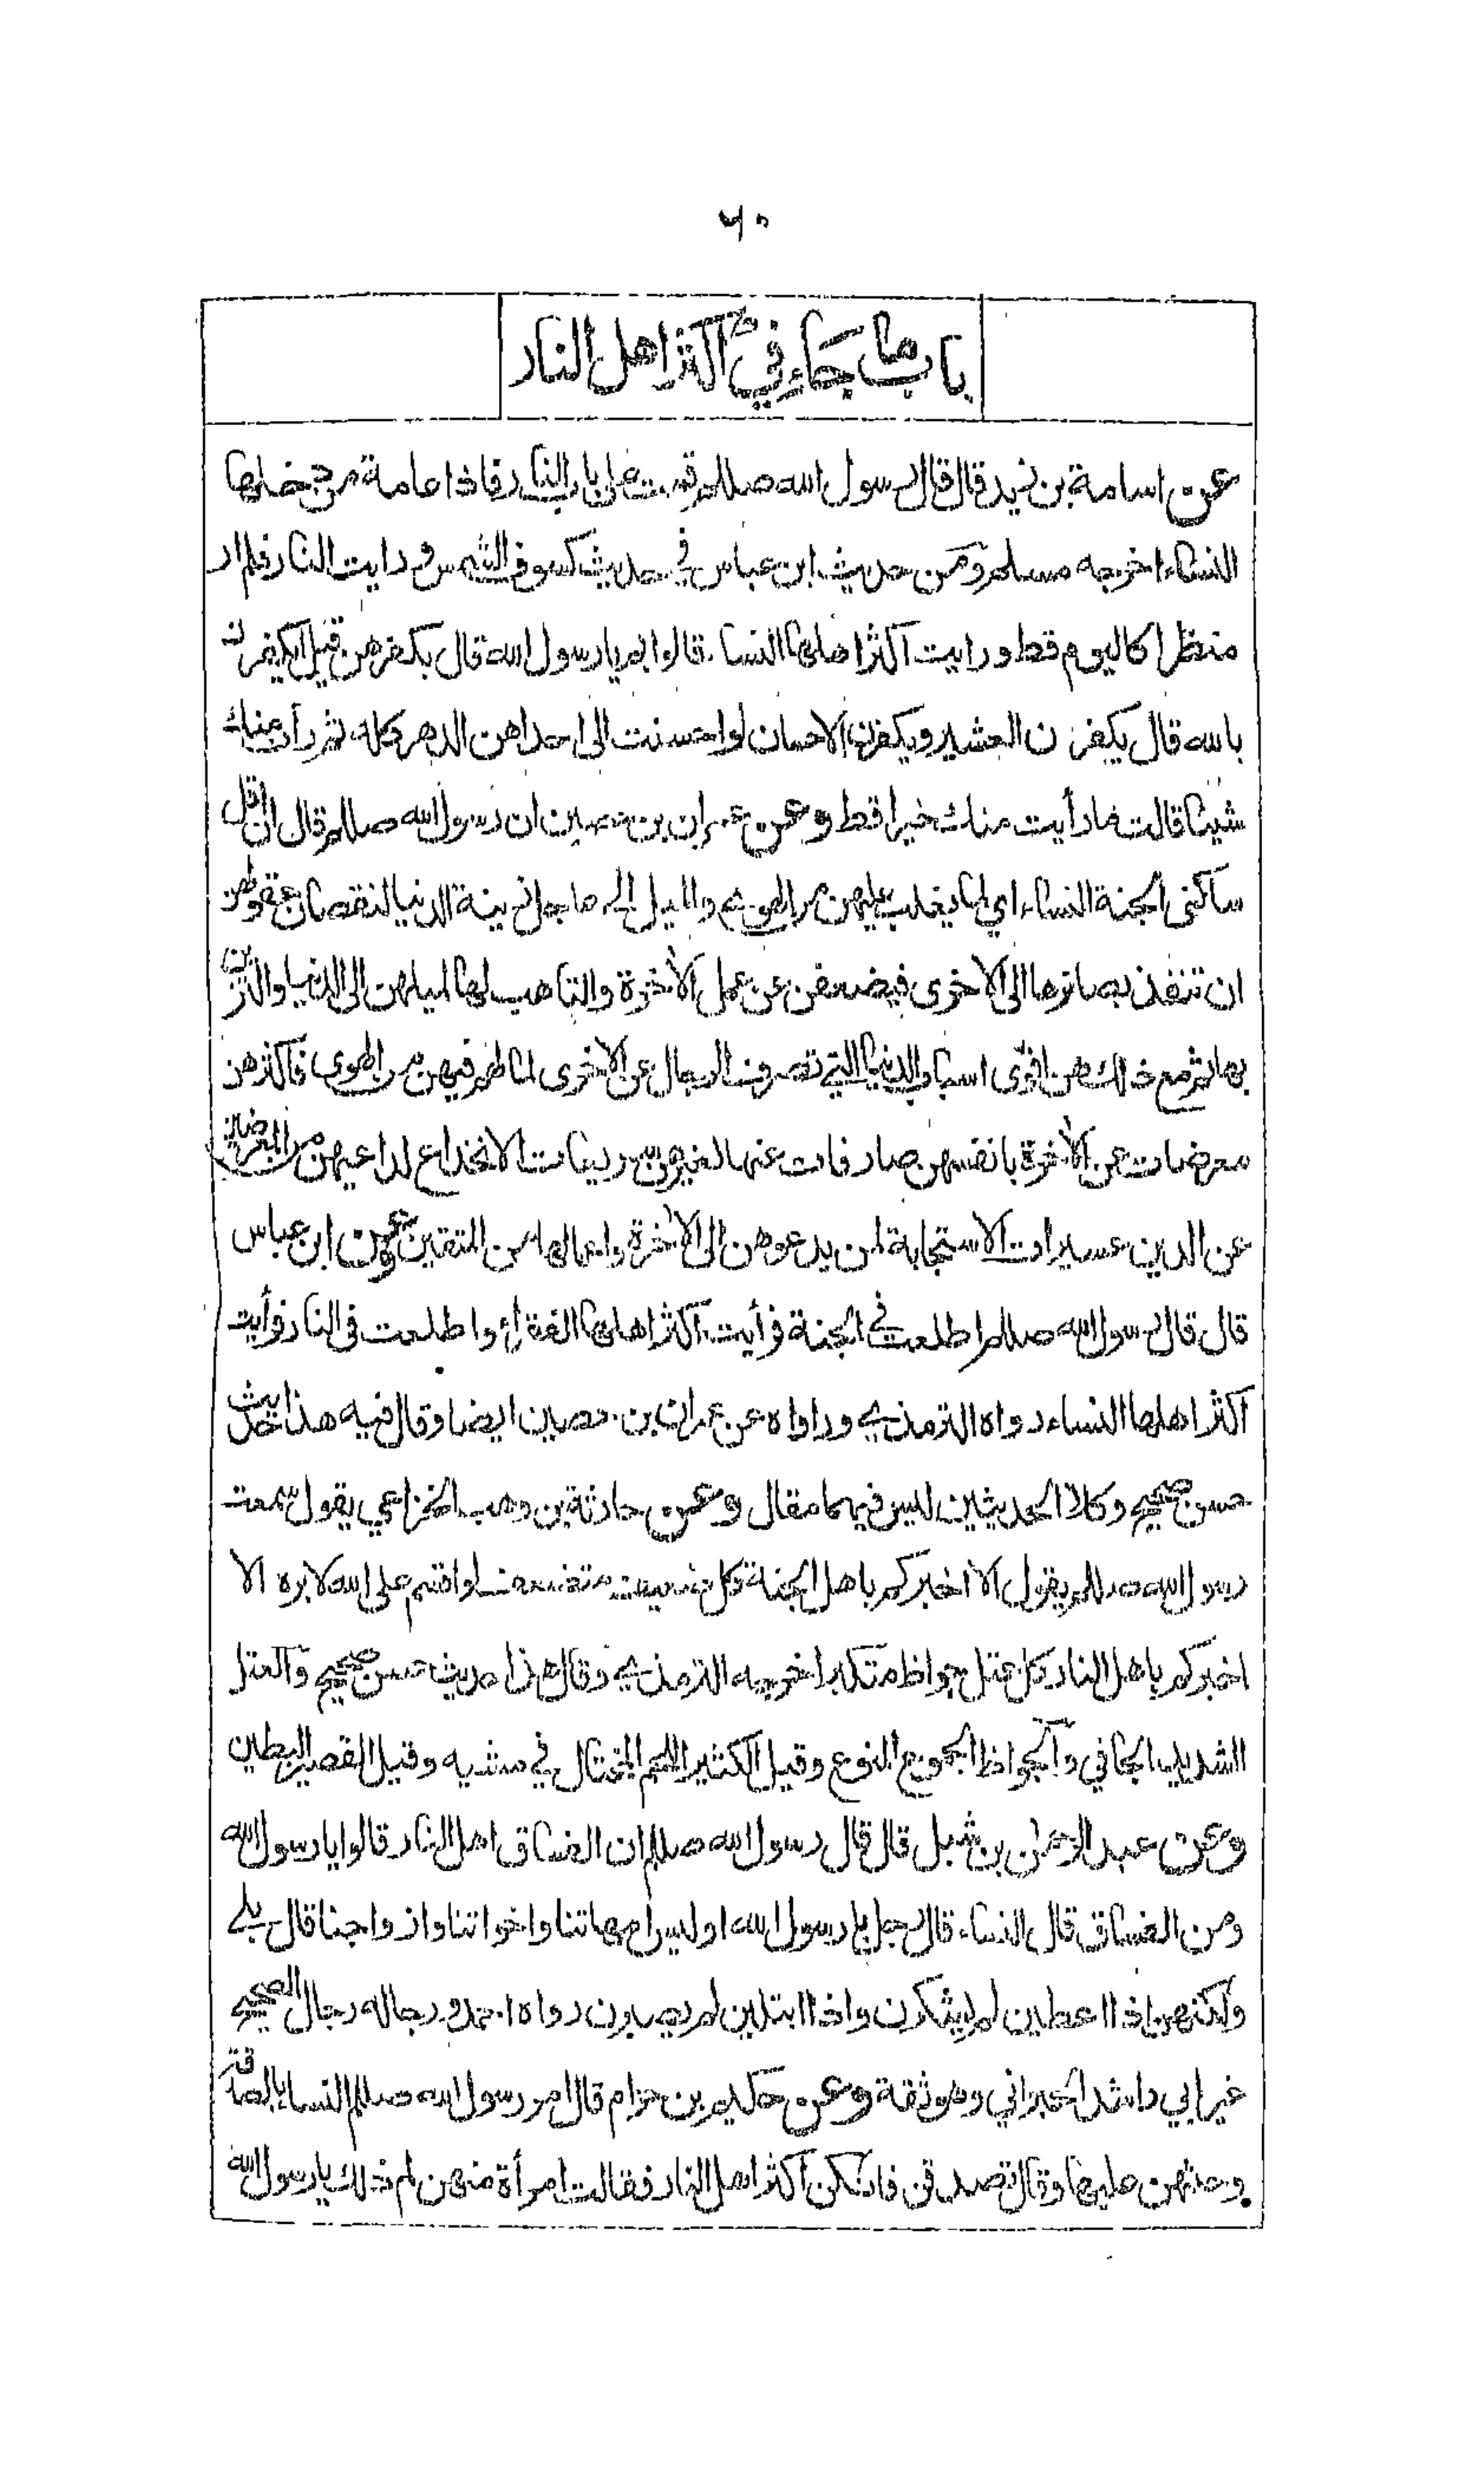 ٦٠
باب ما جاء في اكثر اهل النار
عن اسامة بن زيد قال قال رسول الله صللم قمت على باب النار فاذا عامة من دخلها
النساء اخرجه مسلم ومن حديث ابن عباس في حديث كسوف الشمس ورايت النار فلم ار
منظرا كاليوم قط ورايت اكثر اهلها النساء قالوا بم يا رسول الله قال بكفرهن قيل ايكفرن
بالله قال يكفرن العشير ويكفرن الاحسان لو احسنت الى احداهن الدهر كله ثم رأت منك
شيئا قالت ما رأيت منك خيرا قط وعن عمران بن حصين ان رسول الله صللم قال ان اقل
ساكنى الجنة النساء اي لما يغلب عليهن من الهوى والميل الى عاجل زينة الدنيا لنقصان عقولهن
ان تنفذ بصائرها الى الاخرى فيضعفن عن عمل الاخرة والتاهب لها لميلهن الى الدنيا والتزين
بها ثم مع ذلك هن اقوى اسباب الدنيا التي تصرف الرجال عن الاخرى لما لهم فيهن من الهوى فاكثرهن
معرضات عن الاخرة بانفسهن صارفات عنها لغيرهن سريعات الانخداع لداعيهن من المعرضين
عن الدين عسيرات الاستجابة لمن يدعوهن الى الاخرة واعمالها من المتقين وعن ابن عباس
قال قال رسول الله صللم اطلعت في الجنة فرأيت اكثر اهلها الفقراء واطلعت فى النار فرأيت
اكثر اهلها النساء رواه الترمذي ورواه عن عمران بن حصين ايضا وقال فيه هذا حديث
حسن صحيح وكلا الحديثين ليس فيهما مقال وعن حارثة بن وهب الخزاعي يقول سمعت
رسول الله صللم يقول الا اخبركم باهل الجنة كل ضعيف متضعف لو اقسم على الله لابره الا
اخبركم باهل النار كل عتل جواظ متكبر اخرجه الترمذي وقال هذا حديث حسن صحيح والعتل
الشديد الجافي والجواظ الجموع المنوع وقيل الكثير اللحم المختال في مشيه وقيل القصير البطين
وعن عبد الرحمن بن شبل قال قال رسول الله صللم ان الفساق اهل النار قالوا يا رسول الله
ومن الفساق قال النساء قال رجل يا رسول الله اوليس امهاتنا واخواتنا وازواجنا قال بلى
ولكنهن اذا اعطين لم يشكرن واذا ابتلين لم يصبرن رواه احمد ورجاله رجال الصحيح
غير ابي راشد الحبراني وهو ثقة وعن حكيم بن حزام قال امر رسول الله صللم النساء بالصدقة
وحثهن عليها وقال تصدقن فانكن اكثر اهل النار فقالت امرأة منهن لم ذلك يا رسول الله